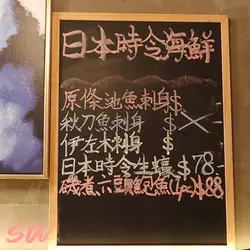 日本時令海鮮
原條池魚刺身$
秋刀魚刺身 $
伊左木刺身 $
日本時令生蠔$78
磯煮六頭鮑魚(1pc)$88
sw